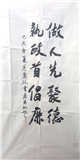 做人先聚德
執政首倡廉